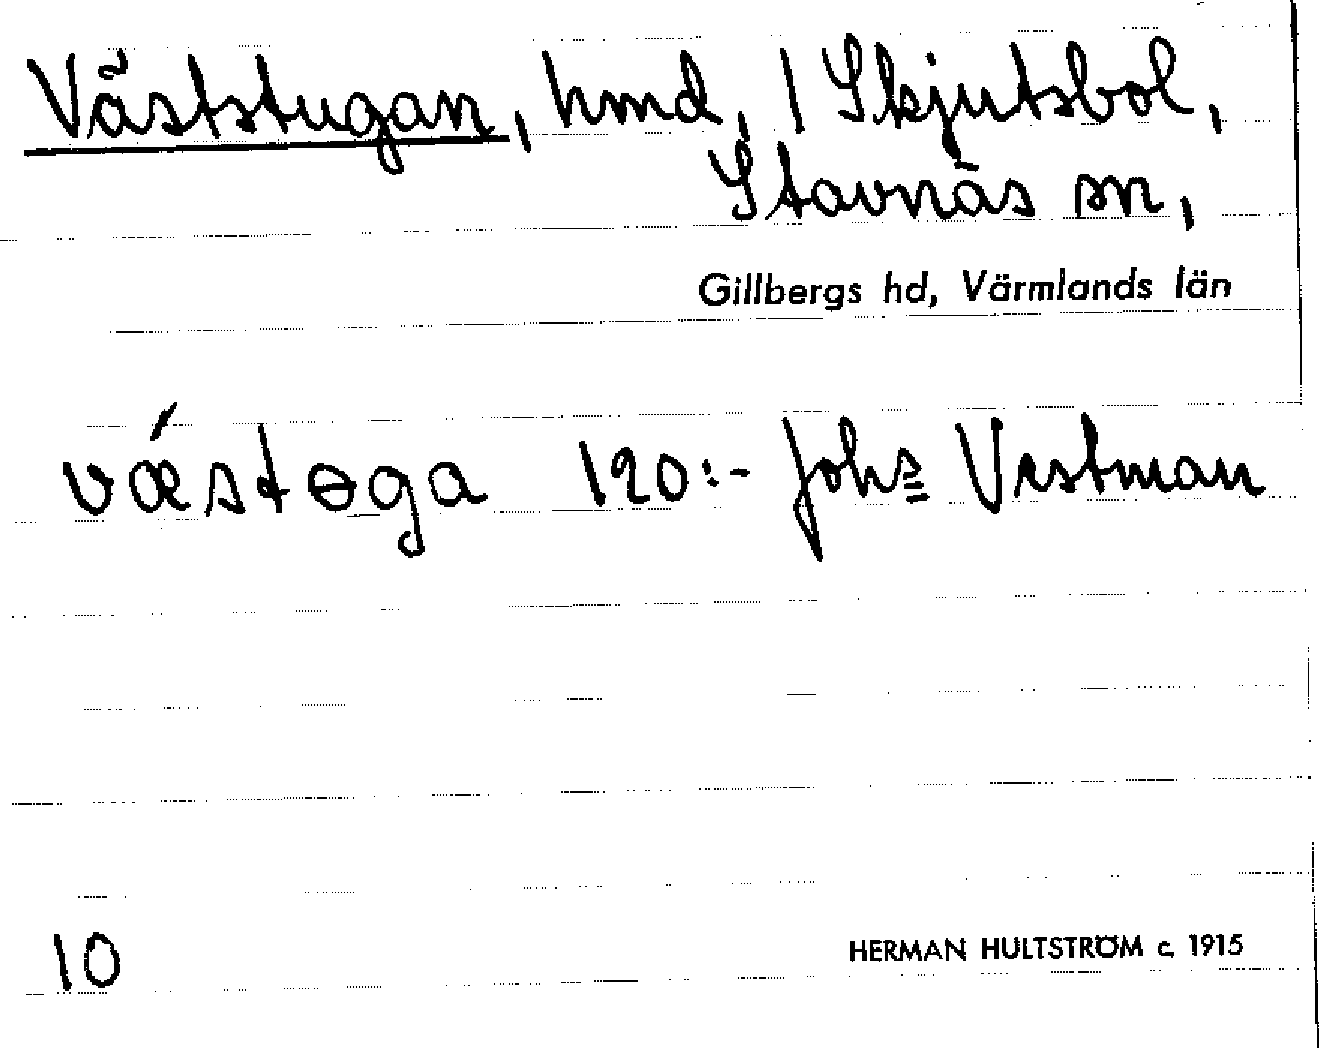 Väststugan, hmd, 1 Skjutsbol,
Stavnäs sn,
Gillbergs hd, Värmlands län
vǽstɵga 120:- Johs Vestman
10
HERMAN HULTSTRÖM c. 1915